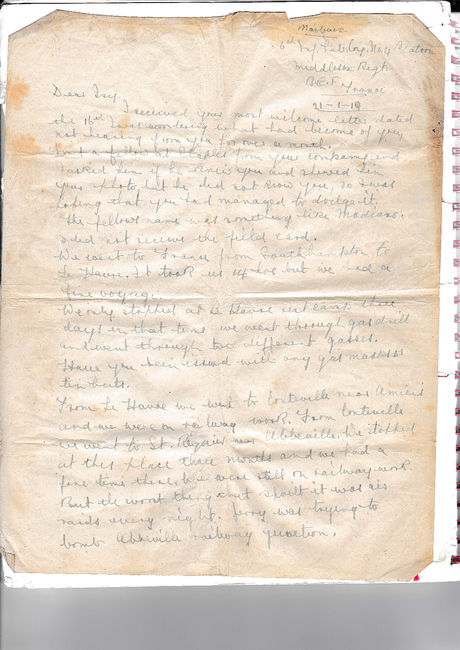 6th Inf. Lab Coy. No 4 Platoon
Middlesex Regt
B.E.F. France
21-1-18
Dear
I received your most welcome letter dated
the 16th I was wondering what had become of you,
not hearing from you for over a month.
I met a fellow at Etaples from your company, and
I asked him if he knew you and showed him
your photo, but he did not know you, so I was
hoping that you had managed to dodge it,
the fellows name was something like
I did not receive the field card.
We went to France from Southampton to
Le Havre. It took us 14 hrs but we had a
fine voyage.
We only stopped at Le Havre rest camp three
days in that time we went through gas drill
and went through two different gasses.
Have you been issued with any gas masks or
tin hats.
From Le Havre we went to Conteville near Amiens
and we were on railway work. From Conteville
we went to St. Riquier near Abbeville. We stopped
at this place three months and we had a
fine time there. We were still on railway work
But the worst thing that spoilt it was air
raids every night. Jerry was trying to
bomb Abbeville railway junction.